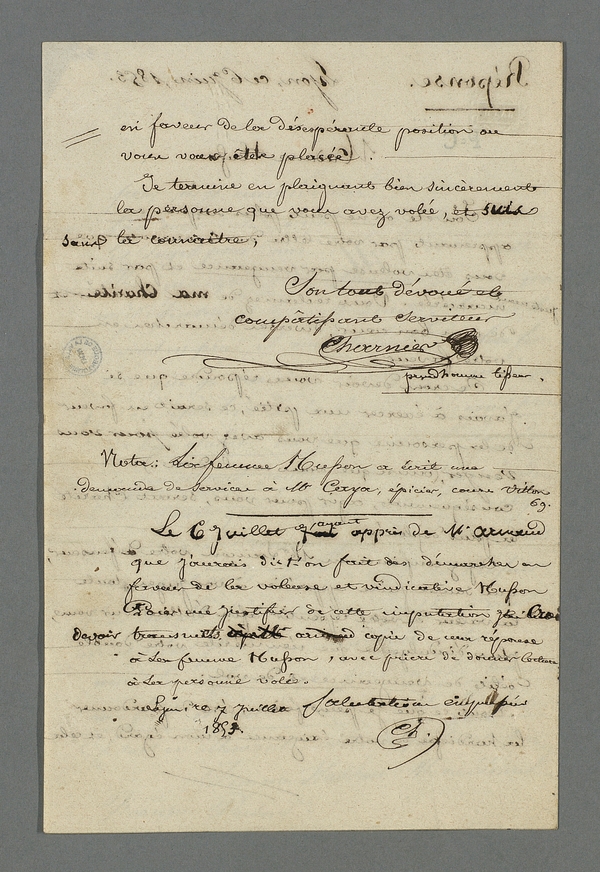 en faveur de la désespérante position ou
vous vous êtes placée).
Je termine en plaignant bien sincèrement
la personne que vous avez volée, et suis
sans la connaitre,
Son tout dévoué et
compâtissant Serviteur
Charnier
prudhomme tisseur.
Nota: La femme Husson a écrit une
demande de services à Mr Caya, épicier, cours Vitton
69.
Le 6 Juillet ayant appris de Mr Arnaud
que j'aurais dit on fait des démarches en
faveur de la voleuse et vindicative Husson
Pour me justifier de cette imputation j'ai Cru
devoir transmettre copie de ma réponse
à La femme Husson, avec prière de donner lecture
à La personne volée.
Lyon ce 7 Juillet Salutation
1853.
Ch